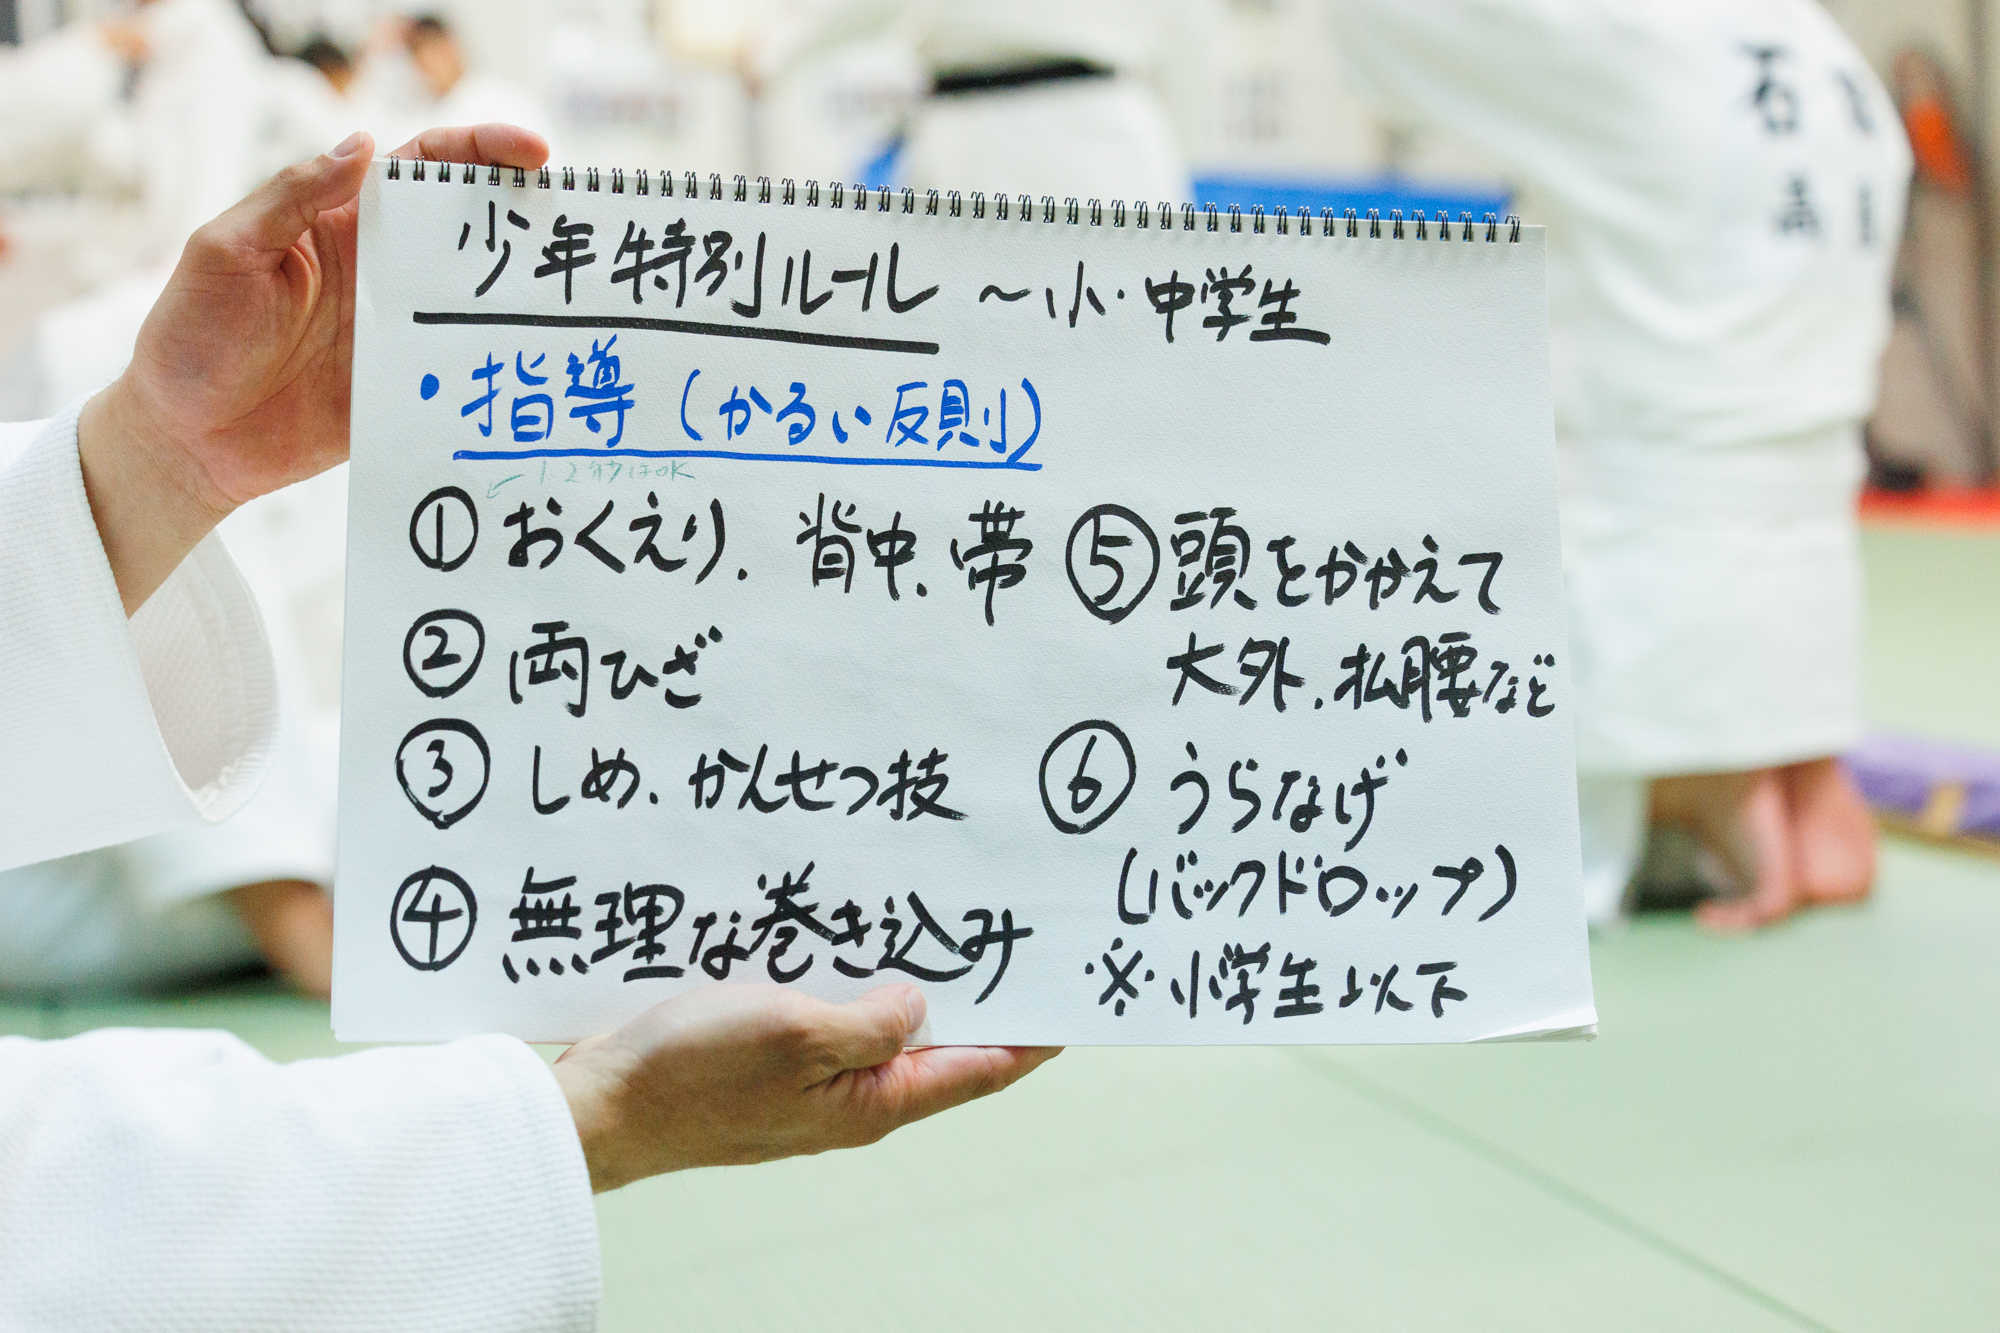 少年特別ルール ～小・中学生
・指導（かるい反則）
← 1、2秒はOK
① おくえり、背中、帯
② 両ひざ
③ しめ、かんせつ技
④ 無理な巻き込み
⑤ 頭をかかえて
大外、払腰など
⑥ うらなげ
（バックドロップ）
※小学生以下
石
高